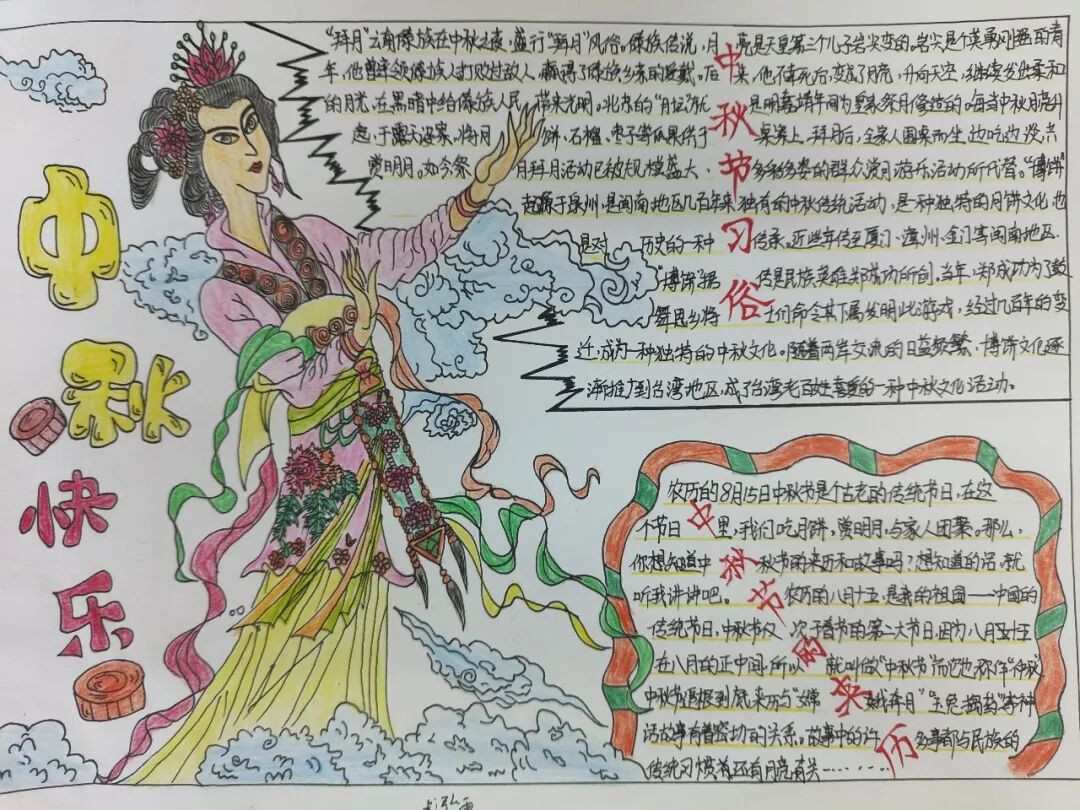 中秋快乐
"拜月"云南傣族在中秋之夜,盛行"拜月"风俗。傣族传说,月亮是天皇第三个儿子岩尖变的。岩尖是个英勇刚强的青
年,他曾率领傣族人打败过敌人,赢得了傣族乡亲的爱戴,后来,他不幸死后,变成了月亮,升向天空,继续发出柔和
的月光,在黑暗中给傣族人民带来光明。北京的"月坛"就是明嘉靖年间为皇家祭月修造的。每当中秋月亮升
起,于露天设案,将月饼、石榴、枣子等瓜果供于桌案上,拜月后,全家人围桌而坐,边吃边谈,共
赏明月。如今祭月拜月活动已被规模盛大、多彩多姿的群众赏月游乐活动所代替。"博饼"
起源于泉州,是闽南地区几百年来独有的中秋传统活动,是一种独特的月饼文化,也
是对历史的一种传承。近些年传至厦门、漳州、金门等闽南地区.
"博饼"据传是民族英雄郑成功所创,当年,郑成功为了鼓
舞思乡将士们命令其下属发明此游戏,经过几百年的变
迁,成为一种独特的中秋文化。随着两岸交流的日益频繁,博饼文化逐
渐推广到台湾地区,成了台湾老百姓喜爱的一种中秋文化活动。
中秋节习俗
农历的8月15日中秋节是个古老的传统节日,在这
个节日里,我们吃月饼,赏明月,与家人团聚。那么,
你想知道中秋节的来历和故事吗?想知道的话,就
听我讲讲吧。农历的八月十五,是我的祖国——中国的
传统节日,中秋节仅次于春节的第二大节日,因为八月
在八月的正中间,所以就叫做"中秋节",而也称作"仲秋"
中秋节追根到底来历与"嫦娥奔月""玉兔捣药"等神
话故事有着密切的关系。故事中的许多事都与民族的
传统习惯有还有月亮有关……
中秋节的来历